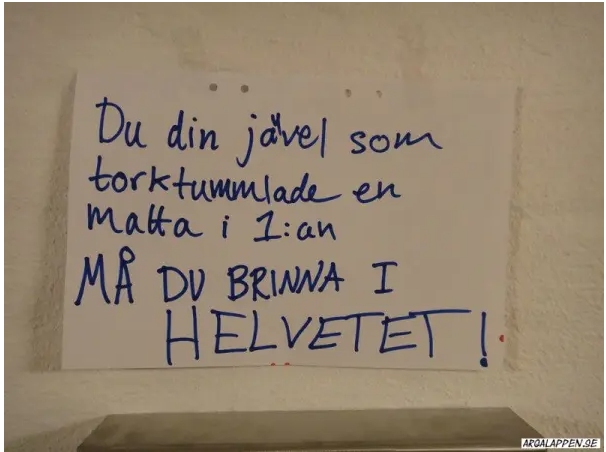 Du din jävel som
torktummlade en
matta i 1:an
MÅ DU BRINNA I
HELVETET!
ARGALAPPEN.SE